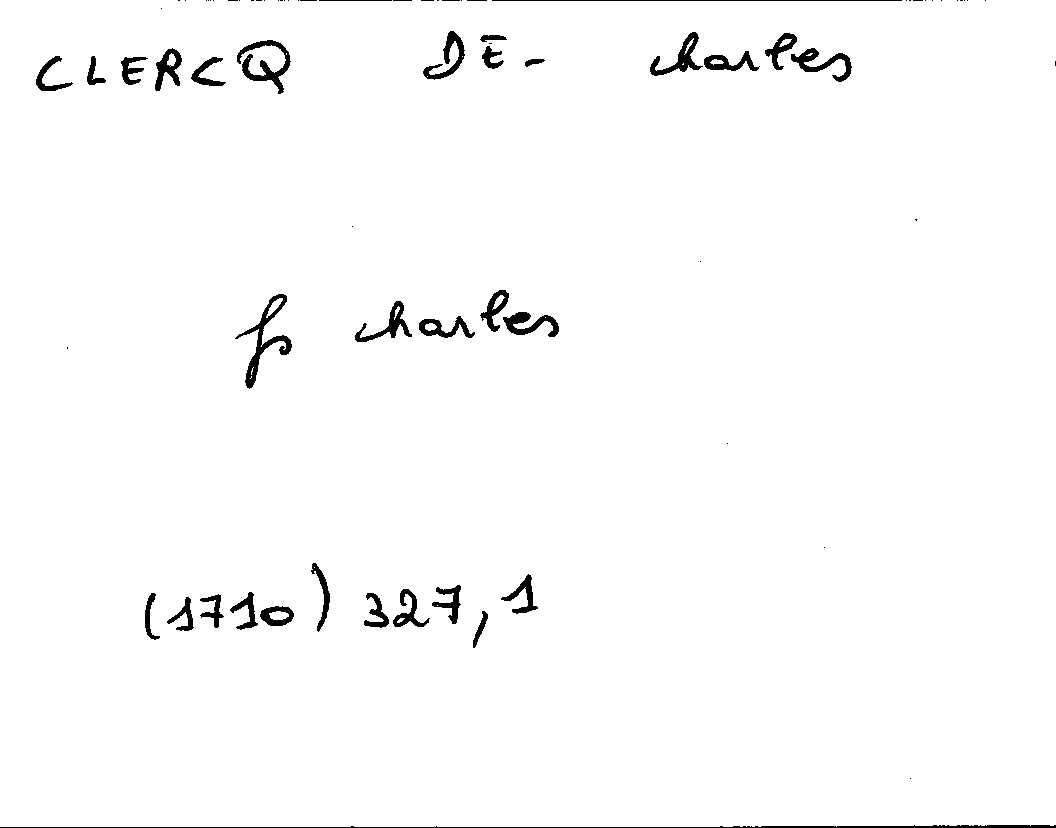 CLERCQ DE- Charles
fs Charles
(1710) 327,1